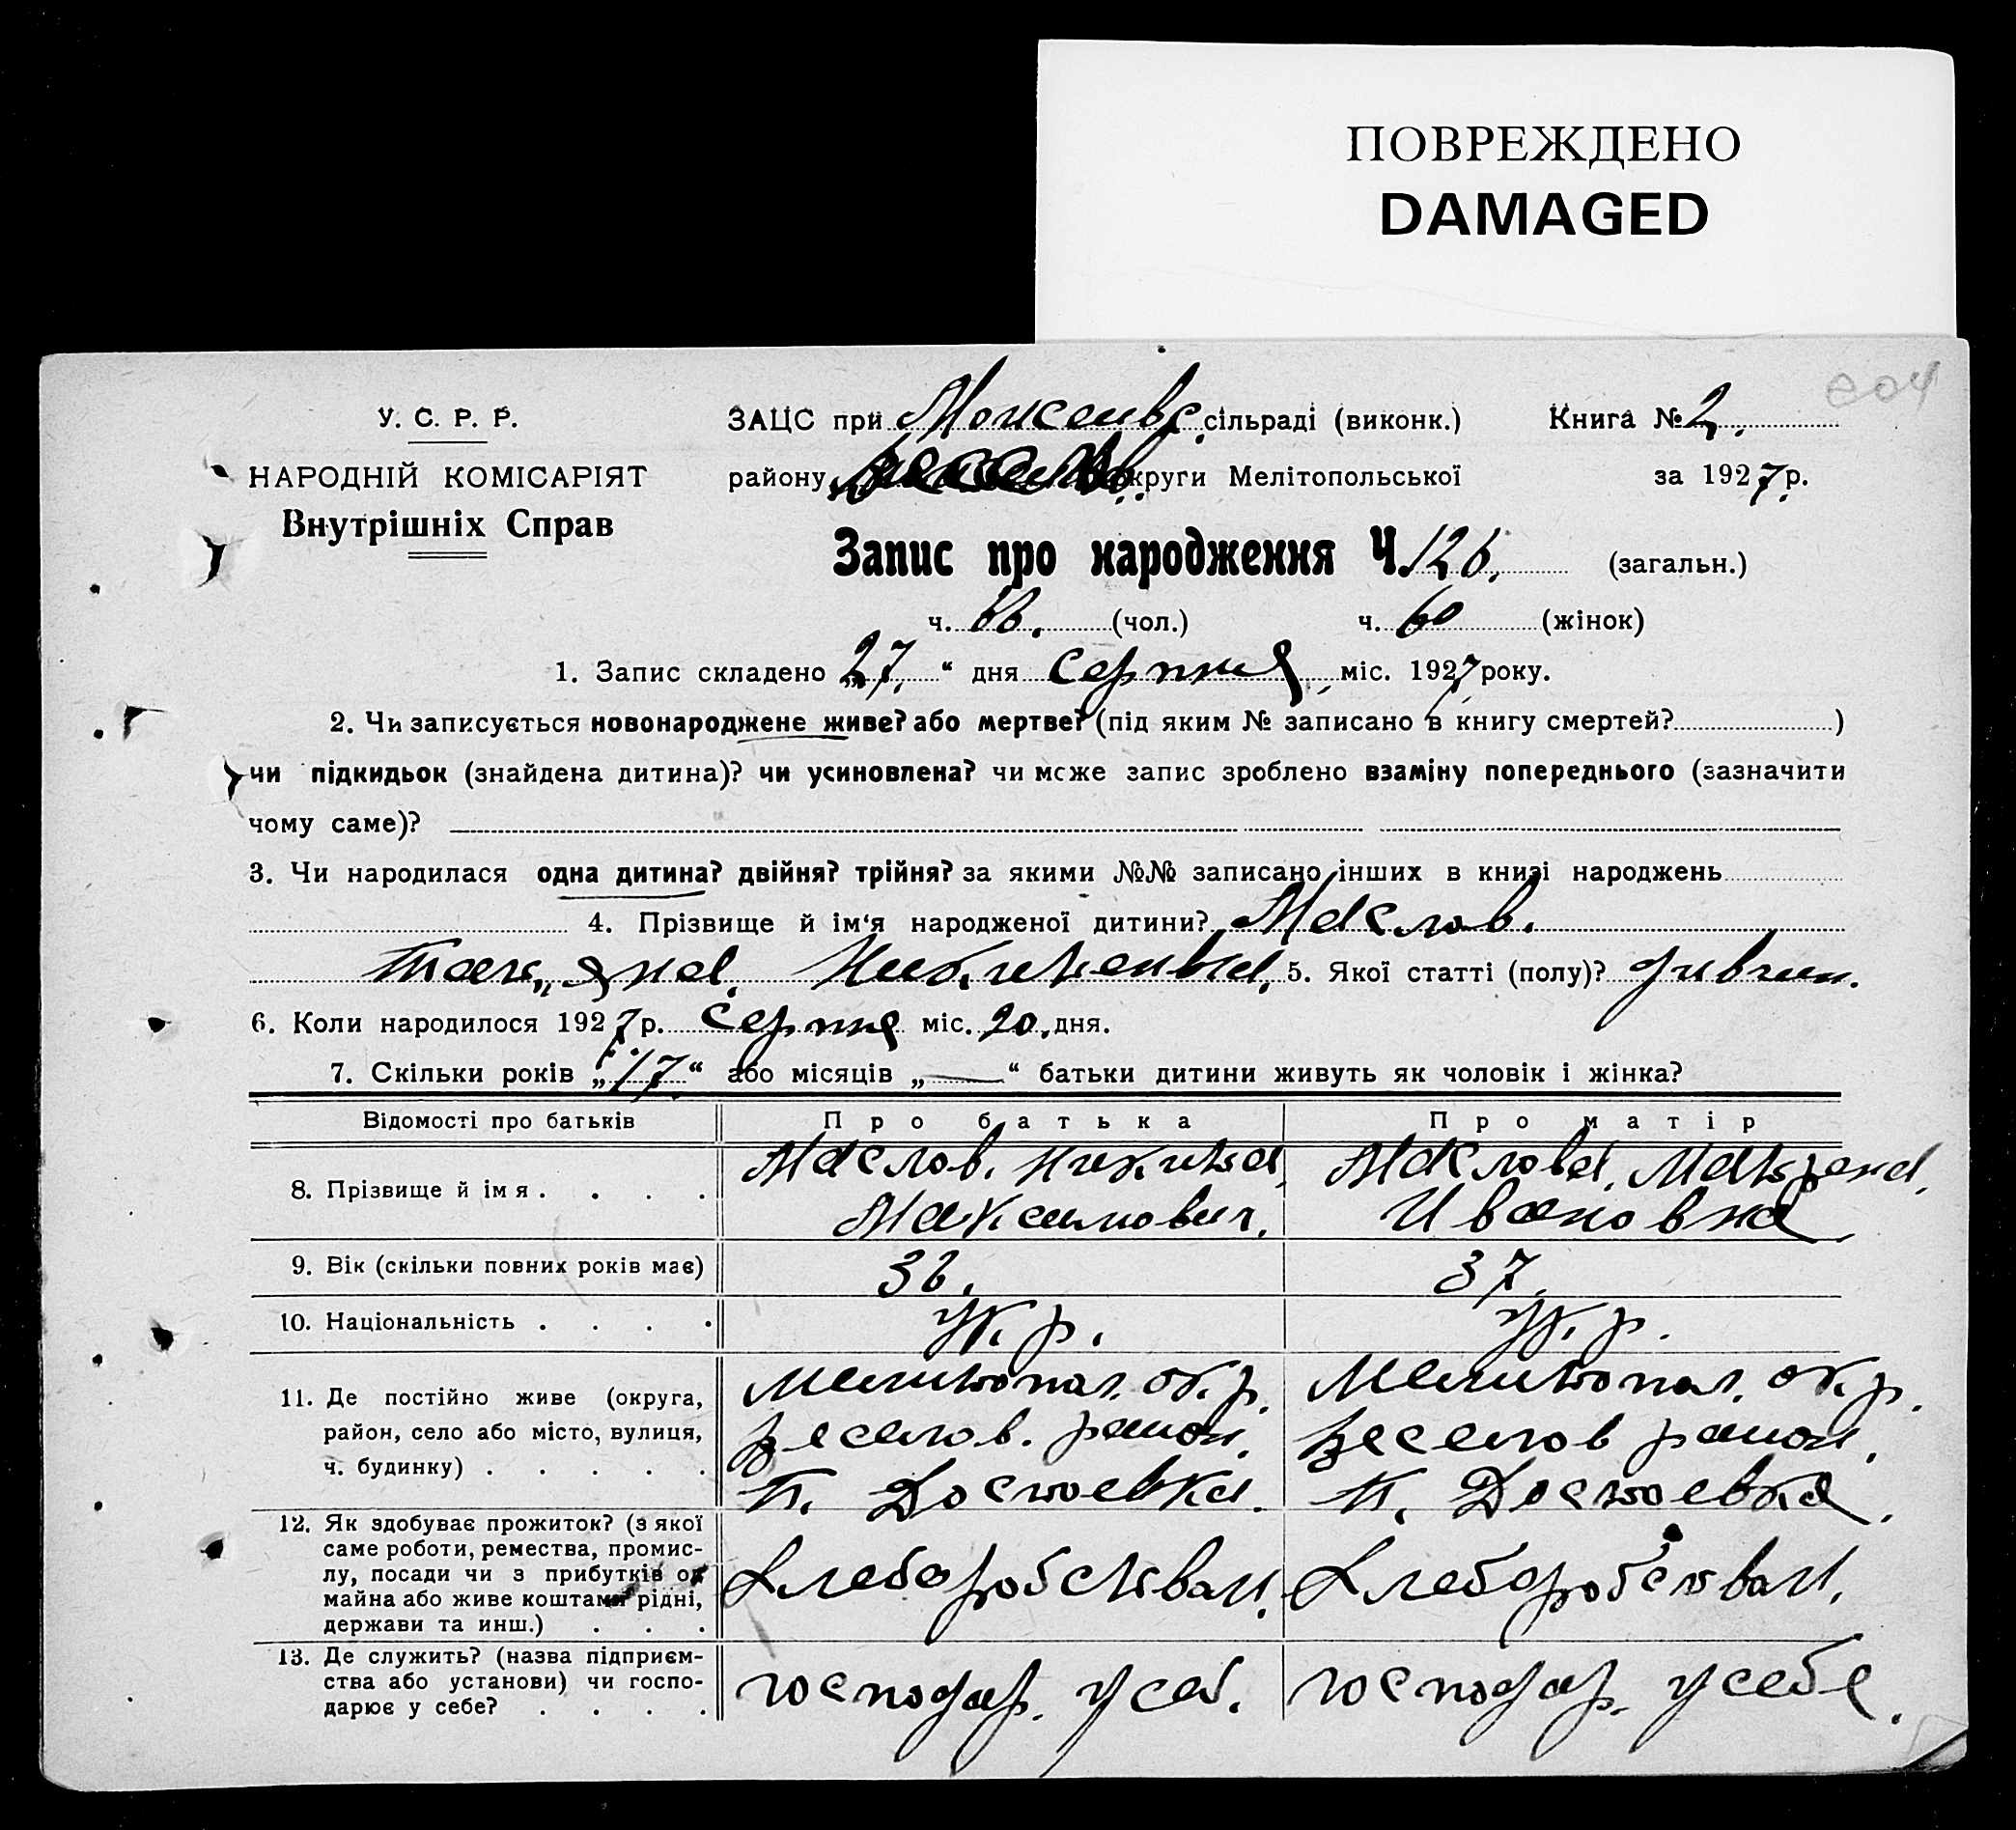 ПОВРЕЖДЕНО
DAMAGED
У. С. Р. Р.
НАРОДНІЙ КОМІСАРІЯТ
Внутрішніх Справ
ЗАЦС при сільраді (виконк.)
Книга № 2.
району Веселів. округи Мелітопольської
за 1927 р.
Запис про народження Ч. 126. (загальн.)
ч. 66. (чол.) ч. 60 (жінок)
1. Запис складено „27.“ дня серпня міс. 1927 року.
2. Чи записується новонароджене живе? або мертве? (під яким № записано в книгу смертей? )
чи підкидьок (знайдена дитина)? чи усиновлена? чи може запис зроблено взаміну попереднього (зазначити
чому саме)?
3. Чи народилася одна дитина? двійня? трійня? за якими №№ записано інших в книзі народжень
4. Прізвище й ім‘я народженої дитини? Маслов.
Никитьевна. 5. Якої статті (полу)? дивчин.
6. Коли народилося 1927 р. серпня міс. 20. дня.
7. Скільки років „17.“ або місяців „—“ батьки дитини живуть як чоловік і жінка?
Відомості про батьків Про батька Про матір
8. Прізвище й імя . . . . .
Маслов. Никита Максимович.
Маслова. Матрена. Ивановна.
9. Вік (скільки повних років має) 36. 37.
10. Національність . . . . Укр. Укр.
11. Де постійно живе (округа,
район, село або місто, вулиця,
ч. будинку) . . . . .
Мелитопол. окр.
Веселов. район.
п. Достоевка.
Мелитопол. окр.
Веселов район.
п. Достоевка.
12. Як здобуває прожиток? (з якої
саме роботи, ремества, промис-
лу, посади чи з прибутків од
майна або живе коштами рідні,
держави та инш.) . . .
Хлеборобством.
Хлеборобством.
13. Де служить? (назва підприєм-
ства або установи) чи госпо-
дарює у себе? . . . .
господар. у себ.
господар. у себе.